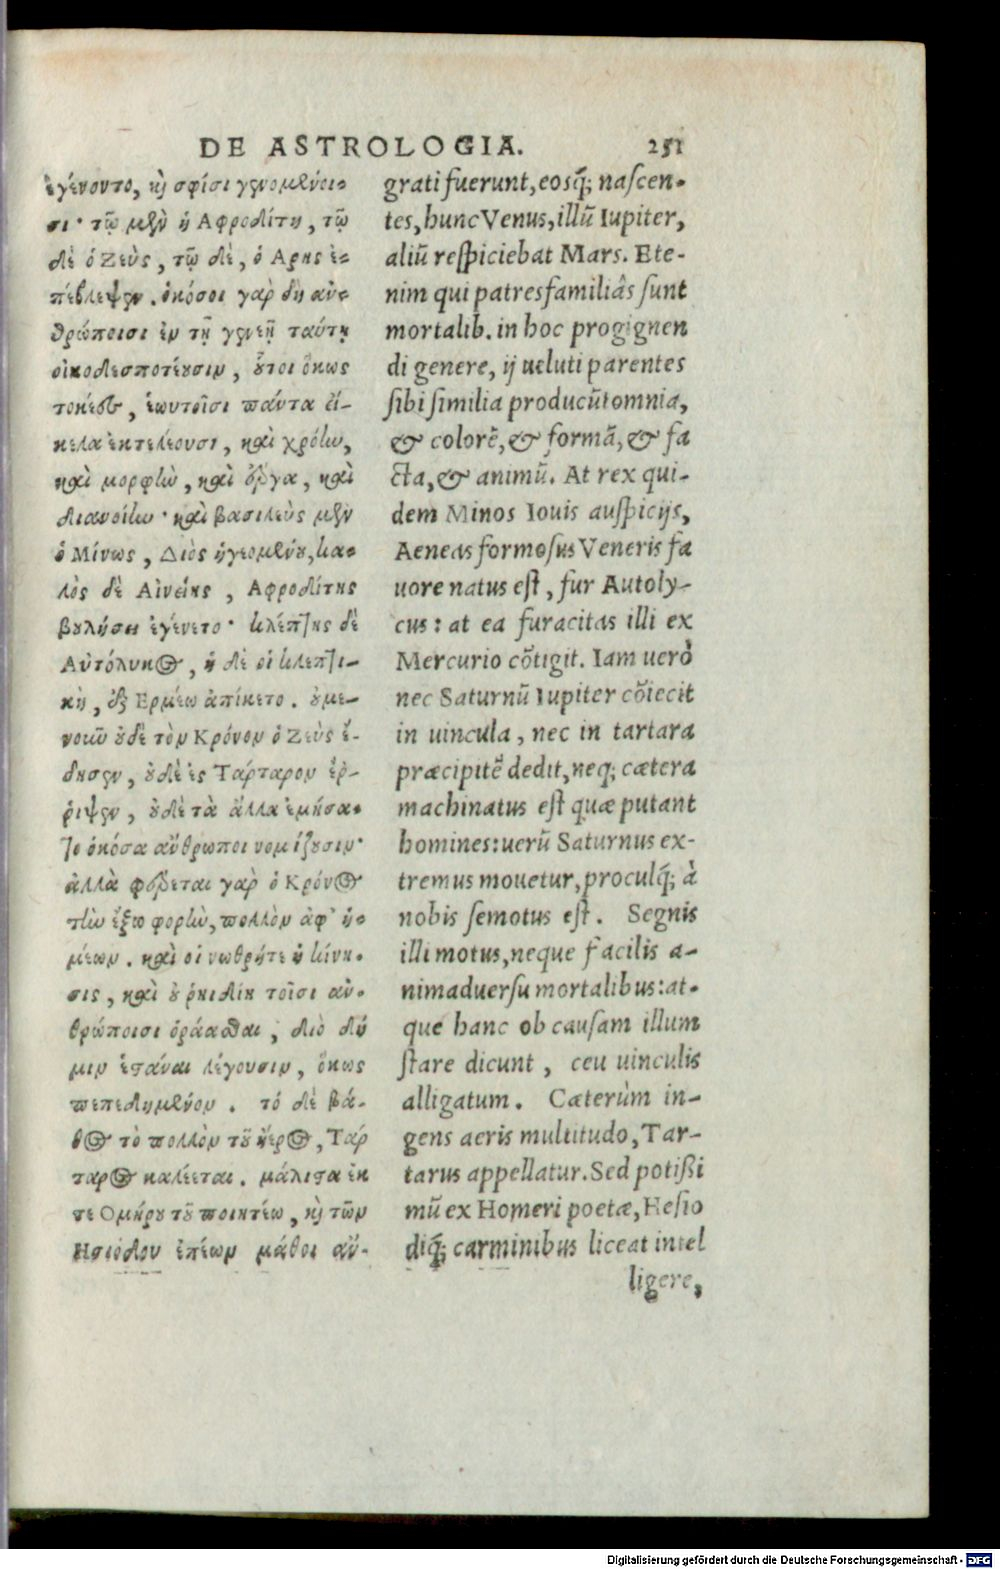 DE ASTROLOGIA. 251
ἐγένοντο, κỳ σφίσι γενομένοι-
σι· τῷ μὲν ἡ Αφροδίτη, τῷ
δὲ ὁ Ζεὺς, τῷ δὲ, ὁ Αρης ἐ-
πέβλεψεν. ὁκόσοι γὰρ δὴ ἀν-
θρώποισι ἐν τῇ γενεῇ ταύτῃ
οἰκοδεσποτέουσιν, οὗτοι ὅκως
τοκέες, ἑωυτοῖσι πάντα εἴ-
κελα ἐκτελέουσι, καὶ χρόην,
καὶ μορφὴν, καὶ ἔργα, καὶ
διανοίην· καὶ βασιλεὺς μὲν
ὁ Μίνως, Διὸς ἡγεομένου, κα-
λὸς δὲ Αἰνείης, Αφροδίτης
βουλήσει ἐγένετο· κλέπτης δὲ
Αὐτόλυκος, ἡ δὲ οἱ κλεπτι-
κὴ, ἐξ Ερμέω ἀπίκετο. οὐμε-
νοιῶ οὐδὲ τὸν Κρόνον ὁ Ζεὺς ἔ-
δησεν, οὐδὲ ἐς Τάρταρον ἔρ-
ριψεν, οὐδὲ τὰ ἄλλα ἐμήσα-
το ὁκόσα ἄνθρωποι νομίζουσιν·
ἀλλὰ φέρεται γὰρ ὁ Κρόνος
τὴν ἔξω φορὴν, πολλὸν ἀφ᾽ ἡ-
μέων. καὶ οἱ νωθρήτε ἡ κίνη-
σις, καὶ οὐ ρηιδίη τοῖσι ἀν-
θρώποισι ὁράασθαι, διὸ δή
μιν ἑστάναι λέγουσιν, ὅκως
πεπεδημένον. τό δὲ βά-
θος τὸ πολλὸν τοῦ ἠέρος, Τάρ
ταρος καλέεται. μάλιστα ἐκ
τε Ομήρου τοῦ ποιητέω, κỳ τῶν
Ησιόδου ἐπέων μάθοι ἄν-
grati fuerunt, eosq́; nascen-
tes, hunc Venus, illũ Iupiter,
aliũ respiciebat Mars. Ete-
nim qui patresfamiliâs sunt
mortalib. in hoc progignen
di genere, ij ueluti parentes
sibi similia producũt omnia,
& colorẽ, & formã, & fa
cta, & animũ. At rex qui-
dem Minos Iouis auspicijs,
Aeneas formosus Veneris fa
uore natus est, fur Autoly-
cus: at ea furacitas illi ex
Mercurio cõtigit. Iam uerò
nec Saturnũ Iupiter cõiecit
in uincula, nec in tartara
præcipitẽ dedit, neq; cætera
machinatus est quæ putant
homines: uerũ Saturnus ex-
tremus mouetur, proculq́; à
nobis semotus est. Segnis
illi motus, neque facilis a-
nimaduersu mortalibus: at-
que hanc ob causam illum
stare dicunt, ceu uinculis
alligatum. Cæterùm in-
gens aeris multitudo, Tar-
tarus appellatur. Sed potißi
mũ ex Homeri poetæ, Hesio
diq́; carminibus liceat intel
ligere,
Digitalisierung gefördert durch die Deutsche Forschungsgemeinschaft - DFG